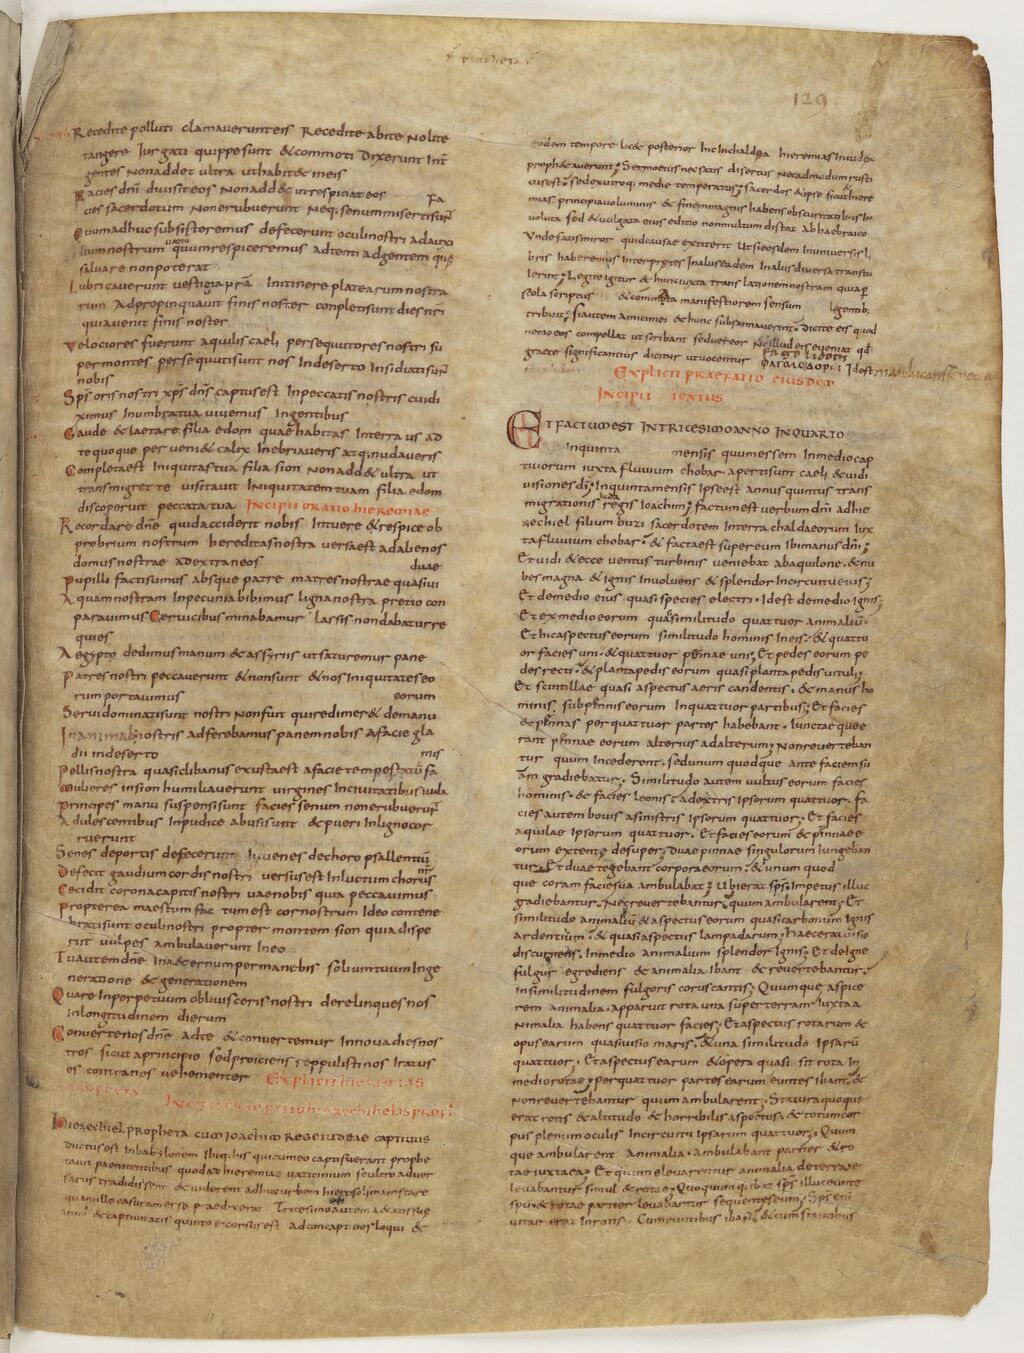 129
Recedite polluti clamaverunteis Recedite abite Nolite
tangere Iurgati quippesunt & commoti Dixerunt Int̄
gentes Nonadd& ultra uthabit& ineis
Facies dn̄i divisiteos Nonadd& utrespiciateos Fa
cies sacerdotum Nonerubuerunt Neq; senum misertisun̄t
Quomadhuc subsisteremus defecerunt oculi nostri adauxi
lium nostrum vanū quum respiceremus adtenti adgentem que
salvare nonpoterat
Lubricaverunt vestigia nr̄a Initinere platearum nostra
rum Adpropinquavit finis noster completisunt dies nr̄i
quiavenit finis noster
Velociores fuerunt aquilis caeli persequutores nostri su
permontes persequutisunt nos Indeserto Insidiatisun̄t
nobis
Sp̄s oris nostri xp̄s dn̄s captusest Inpeccatis nostris cuidi
ximus Inumbratua vivemus Ingentibus
Gaude & laetare filia edom quae habitas Interra us ad
te quoque perveni& calix Inebriaveris atq; nudaveris
Completaest Iniquitas tua filia sion Nonadd& ultra ut
transmigret te visitavit Iniquitatem tuam filia edom
discoperuit peccata tua Incipit oratio hieremiae
Recordare dn̄e quid acciderit nobis Intuere & respice ob
probrium nostrum hereditas nostra versaest ad alienos
domus nostrae ad extraneos duae
Pupilli factisumus absque patre matres nostrae quasivi
Aquam nostram Inpecunia bibimus ligna nostra pretio con
paravimus Cervicibus minabamur lassis nondabatur re
quies
Aegypto dedimus manum & assyriis ut saturemur pane
Patres nostri peccaverunt & nonsunt & nos Iniquitates eo
rum portavimus eorum
Servi dominatisunt nostri Nonfuit quiredimer& demanu
Inanimab; nostris adferebamus panem nobis a facie gla
dii indeserto mis
Pellis nostra quasi clibanus exustaest a facie tempestatū fa
Mulieres insion humiliaverunt virgines Incivitatibus iuda
Principes manu suspensisunt facies senum nonerubuerun̄t
Adulescentibus Inpudice abusisunt & pueri Inligno cor
ruerunt
Senes deportis defecerunt Iuvenes dechoro psallentiū
Defecit gaudium cordis nostri versusest Inluctum chorus nr̄
Cecidit corona capitis nostri vae nobis quia peccavimus
Propterea maestum factum est cor nostrum Ideo contene
bratisunt oculi nostri propter montem sion quia dispe
riit vulpes ambulaverunt Ineo
Tu autem dn̄e Inaeternum permanebis solium tuum Inge
neratione & generationem
Quare Inperpetuum oblivisceris nostri derelinques nos
Inlongitudinem dierum
Converte nos dn̄e ad te & convertemur Innova dies nos
tros sicut a principio sed proiciens reppulisti nos Iratus
es contra nos vehementer Explicit hieremias
propheta
Hiezechiel propheta cum Ioachim rege iudeae captivus
ductus est Inbabylonem Ibiq; his qui cum eo capti fuerant prophe
tavit paenitentibus quodad hieremiae vaticinium se ultro adver
sariis tradidissent & viderent adhuc urbem hierosolimam stare
quam ille casuram esse praedixerat Tricesimo autem aetatis suae
anno & captivitatis quinto exorsus est ad concaptivos loqui &
eodem tempore lic& posterior hic Inchaldea hieremias Iniudea
proph&averunt; Sermo eius nec satis disertus Nec admodum rusti
cus est; sed ex utroq; medie temperatus; sacerdos & ipse sicut hiere
mias principia voluminis & finem magnis habens obscuritatibus In
voluta sed & vulgata eius editio non multum distat Ab hebraico
Unde satis miror quid causae extiterit Ut si eosdem Inuniversis li
bris haberemus Interpretes Inaliis eadem Inaliis diversa transtu
lerint; Legite igitur & hunc iuxta translationem nostram quia per
cola scriptus & commata manifestiorem sensum legentib;
tribuit; si autem amici mei & hunc subsannaverint; Dicite eis quod
nemo eos compellat ut scribant sed vereor Ne illud eis eveniat qđ
graece significantius dicitur ut vocentur Idest manducantes
Explicit praefatio eiusdem
Incipit textus
Et factum est Intricesimo anno Inquarto
Inquinta mensis quum essem Inmedio cap
tivorum iuxta fluvium chobar aperti sunt caeli & vidi
visiones dī; Inquinta mensis Ipse est annus quintus trans
migrationis regis Ioachim; factum est verbum dn̄i ad hie
zechiel filium buzi sacerdotem Interra chaldaeorum Iux
ta fluvium chobar; & facta est super eum Ibi manus dn̄i;
Et vidi & ecce ventus turbinis veniebat ab aquilone & nu
bes magna & ignis Involvens & splendor Incircuitu eius;
Et demedio eius quasi species electri Idest demedio ignis
Et exmedio eorum quasi similitudo quattuor animaliū
Et hic aspectus eorum similitudo hominis Ineis & quattu
or facies uni & quattuor pennae uni; Et pedes eorum pe
des recti & planta pedis eorum quasi planta pedis vituli;
Et scintillae quasi aspectus aeris candentis & manus ho
minis sub pennis eorum Inquattuor partibus; Et facies
& pennas per quattuor partes habebant Iunctaeque e
rant pennae eorum alterius ad alterum; Non reverteban
tur quum Incederent sed unum quodque ante faciem su
am gradiebatur; Similitudo autem vultus eorum facies
hominis & facies leonis a dextris Ipsorum quattuor Fa
cies autem bovis a sinistris Ipsorum quattuor; Et facies
aquilae Ipsorum quattuor Et facies eorum & pennae e
orum extentę desuper; Duae pinnae singulorum Iungeban
tur Et duae tegebant corpora eorum & unum quod
que coram facie sua ambulabat; Ubi erat sp̄s Impetus illuc
gradiebantur Nec revertebantur quum ambularent Et
similitudo animaliū & aspectus eorum quasi carbonum Ignis
ardentium & quasi aspectus lampadarum Haec erat visio
discurrens Inmedio animalium splendor Ignis; Et de Igne
fulgur egrediens & animalia Ibant & revertebantur
Insimilitudinem fulgoris coruscantis; Quumque aspice
rem animalia apparuit rota una super terram Iuxta a
nimalia habens quattuor facies; Et aspectus rotarum &
opus earum quasi visio maris & una similitudo Ipsarū
quattuor; Et aspectus earum & opera quasi sit rota In
medio rotae; per quattuor partes earum euntes ibant &
non revertebantur quum ambularent Statura quoque
erat rotis & altitudo & horribilis aspectus & totum cor
pus plenum oculis Incircuitu Ipsarum quattuor; Quum
que ambularent Animalia Ambulabant pariter & ro
tae iuxta ea; Et quum elevarentur animalia de terra e
levabantur simul & rotae Quoquum q; ibat sp̄s illuc eunte
spū & rotae pariter levabantur sequentes eum; Sp̄s enī
vitae erat Inrotis Cum euntibus ibant & cum stantibus